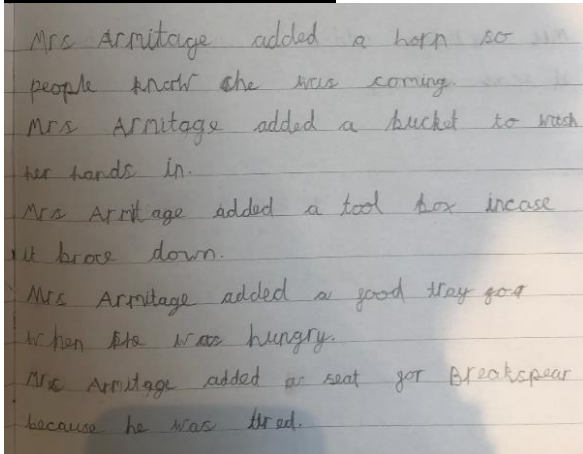 Mrs Armitage added a horn so
people know she was coming.
Mrs Armitage added a bucket to wash
her hands in.
Mrs Armitage added a tool box incase
it broce down.
Mrs Armitage added a food tray for
when she was hungry.
Mrs Armitage added a seat for Breakspear
because he was tired.